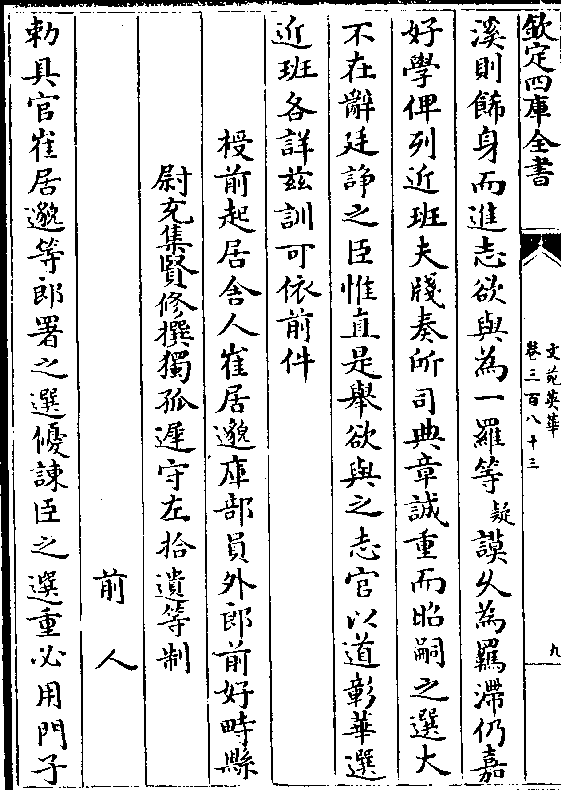 欽定四庫全書
文苑英華
卷三百八十三
九
溪則飾身而進志欲與為一羅等疑謨乆為羈滯仍嘉
好學俾列近班夫牋奏所司典章誠重而昭嗣之選大
不在辭廷諍之臣惟直是舉欲與之志官以道彰華選
近班各詳兹訓可依前件
授前起居舍人崔居邈庫部員外郎前好畤縣
尉充集賢修撰獨孤遲守左拾遺等制
前人
勅具官崔居邈等郎署之選優諫臣之選重必用門子